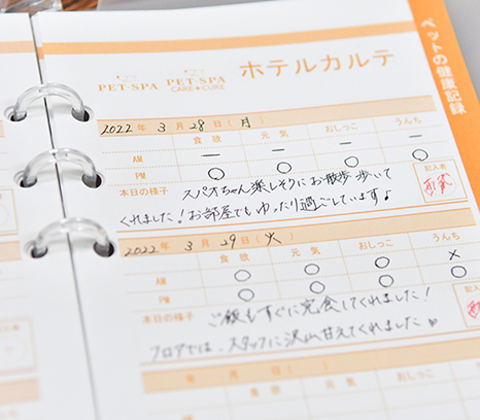 PET-SPA PET-SPA CARE+CURE ホテルカルテ
ペットの健康記録
2022年 3月 28日(月)
食欲 元気 おしっこ うんち
AM — — — —
PM ○ ○ ○ ○
本日の様子 スパオちゃん楽しそうにお散歩歩いて 記入者
くれました!お部屋でもゆったり過ごしています♪
2022年 3月 29日(火)
食欲 元気 おしっこ うんち
AM ○ ○ ○ ×
PM ○ ○ ○ ○
本日の様子 ご飯もすぐに完食してくれました! 記入者
フロアでは、スタッフに沢山甘えてくれました♥
年 月 日( )
食欲 元気 おしっこ うんち
AM
PM